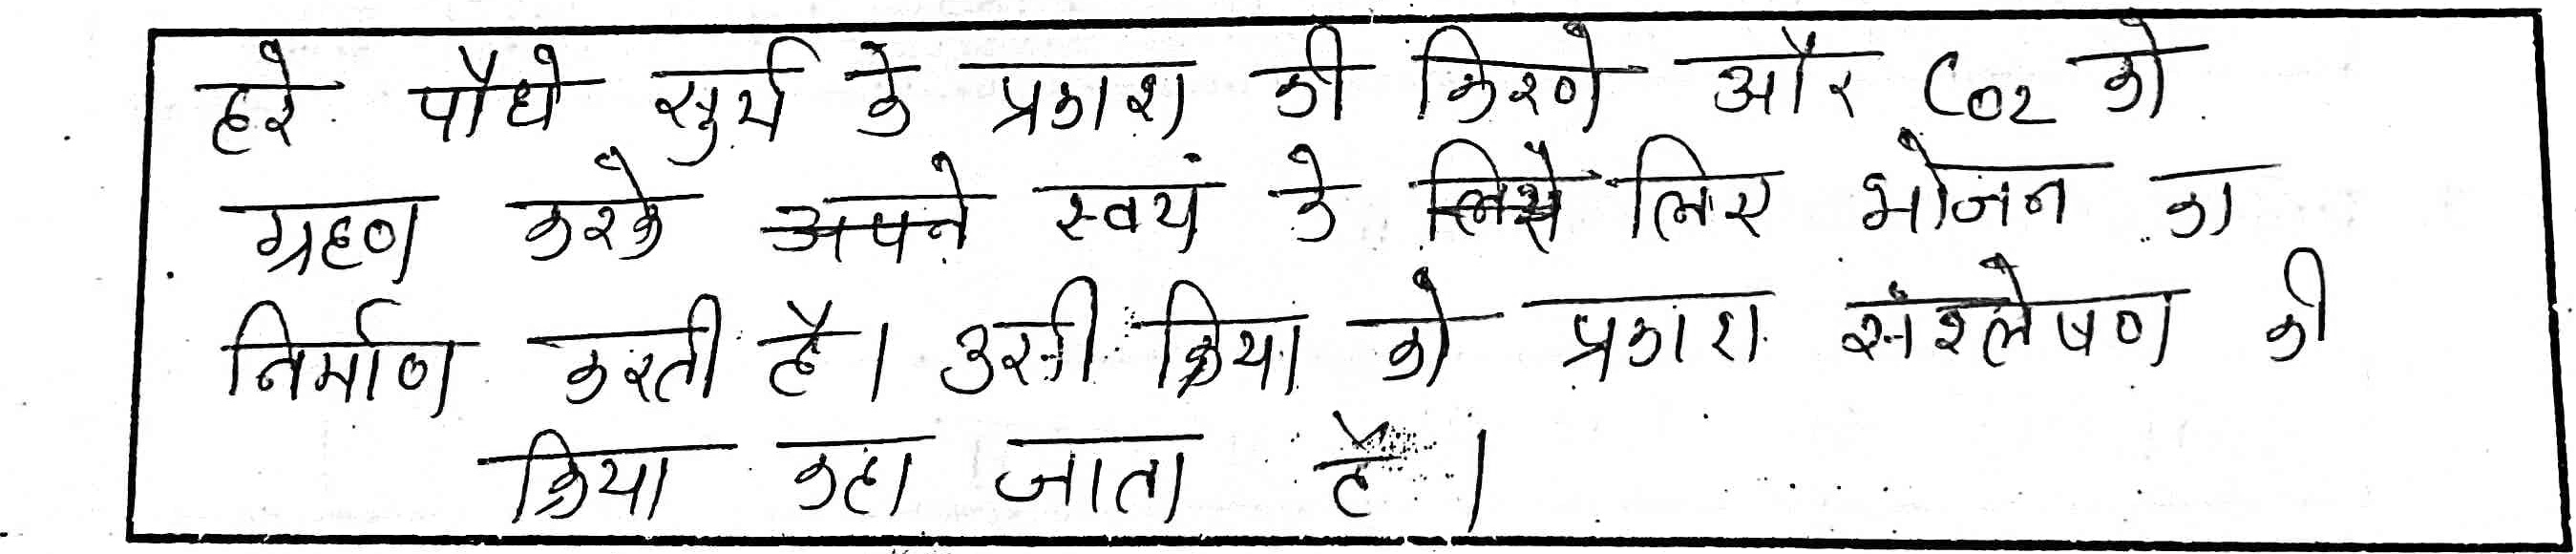 हरे पौधे सुर्य के प्रकाश की किरणे और CO2 को
ग्रहण करके अपने स्वयं के लिये लिए भोजन का
निर्माण करती है। उसी क्रिया को प्रकाश संश्लेषण की
क्रिया कहा जाता है।